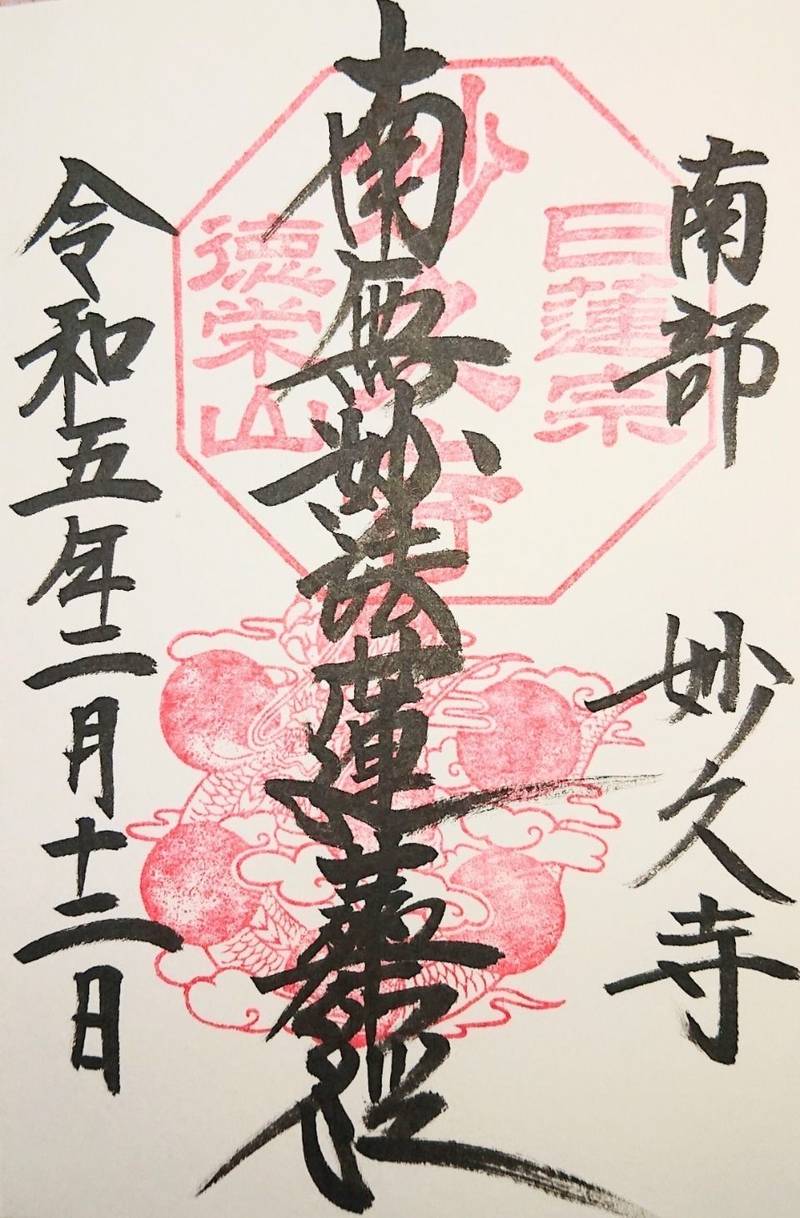 南部 妙久寺
南無妙法蓮華経
令和五年二月十二日
日蓮宗
妙久寺
徳栄山